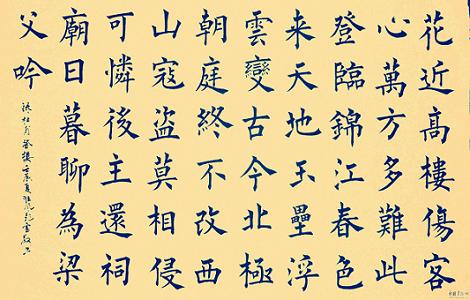 花近高樓傷客
心萬方多難此
登臨錦江春色
来天地玉壘浮
雲變古今北極
朝庭終不改西
山寇盜莫相侵
可憐後主還祠
廟日暮聊為梁
父吟
杜甫登樓壬辰夏